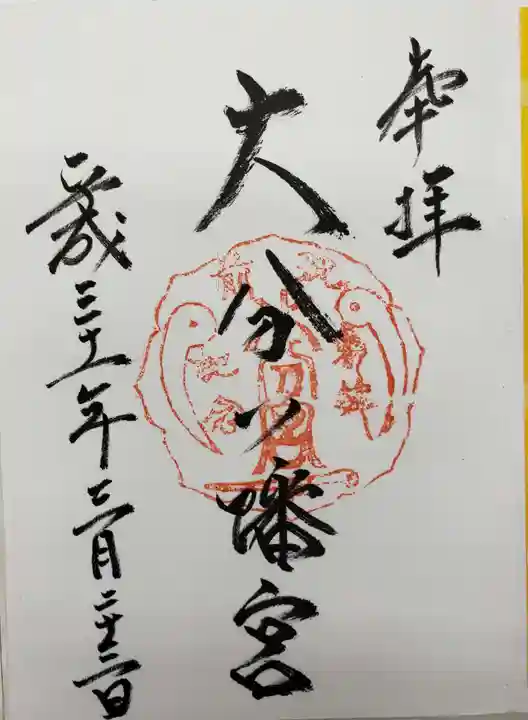 奉拝
大分八幡宮
平成三十一年二月二十三日